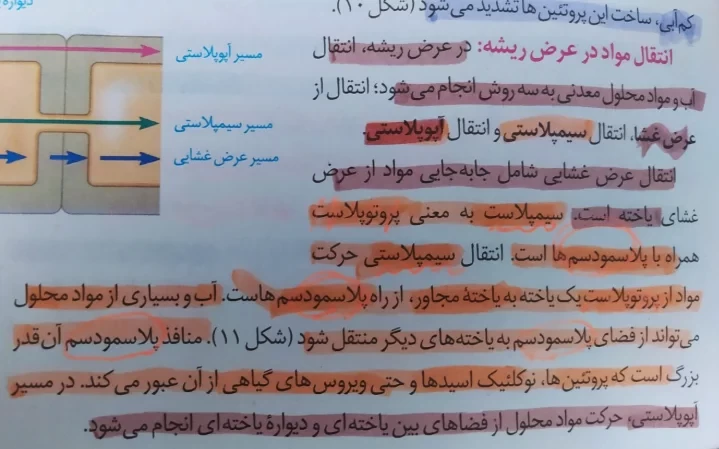 کم‌آبی، ساخت این پروتئین‌ها تشدید می‌شود (شکل ۱۰).
انتقال مواد در عرض ریشه: در عرض ریشه، انتقال
آب و مواد محلول معدنی به سه روش انجام می‌شود؛ انتقال از
عرض غشا، انتقال سیمپلاستی و انتقال آپوپلاستی.
انتقال عرض غشایی شامل جابه‌جایی مواد از عرض
غشای یاخته است. سیمپلاست به معنی پروتوپلاست
همراه با پلاسمودسم‌ها است. انتقال سیمپلاستی حرکت
مواد از پروتوپلاست یک یاخته به یاختهٔ مجاور، از راه پلاسمودسم‌هاست. آب و بسیاری از مواد محلول
می‌تواند از فضای پلاسمودسم به یاخته‌های دیگر منتقل شود (شکل ۱۱). منافذ پلاسمودسم آن‌قدر
بزرگ است که پروتئین‌ها، نوکلئیک اسیدها و حتی ویروس‌های گیاهی از آن عبور می‌کند. در مسیر
آپوپلاستی، حرکت مواد محلول از فضاهای بین یاخته‌ای و دیوارهٔ یاخته‌ای انجام می‌شود.
مسیر آپوپلاستی
مسیر سیمپلاستی
مسیر عرض غشایی